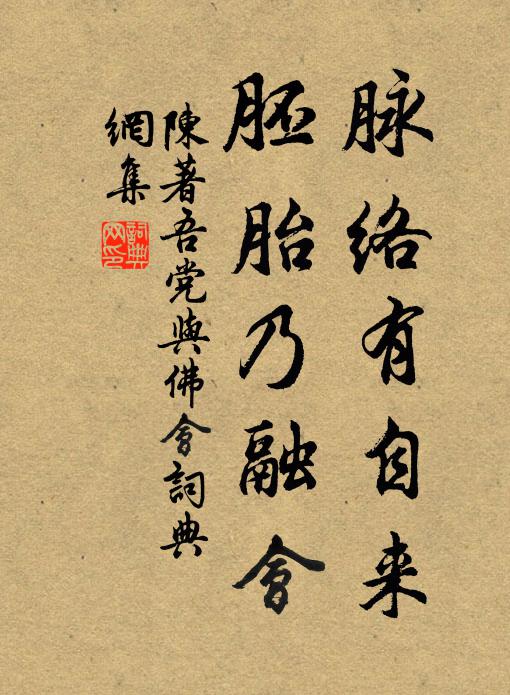 脉络有自来
胚胎乃融會
陳著吾党與佛會詞典
網集
詞典网印